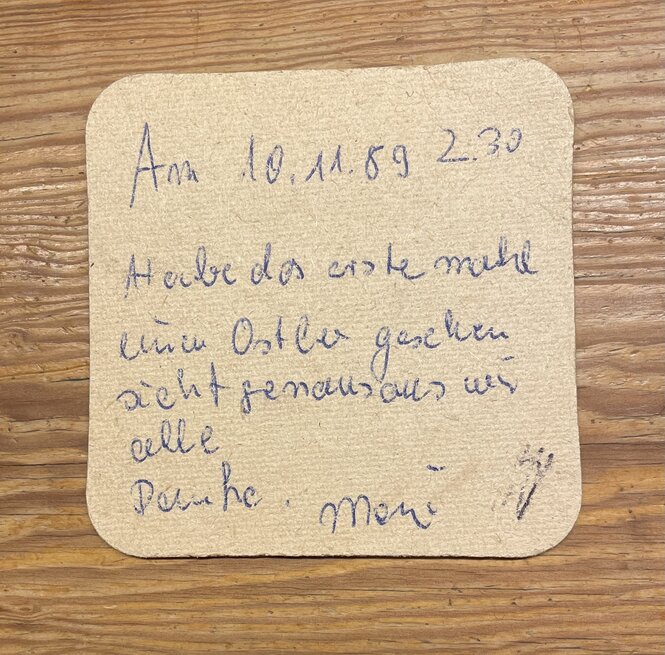 Am 10.11.89 2.30
Habe das erste mahl
einen Ostler gesehen
sieht genausaus wir
alle
Danke.